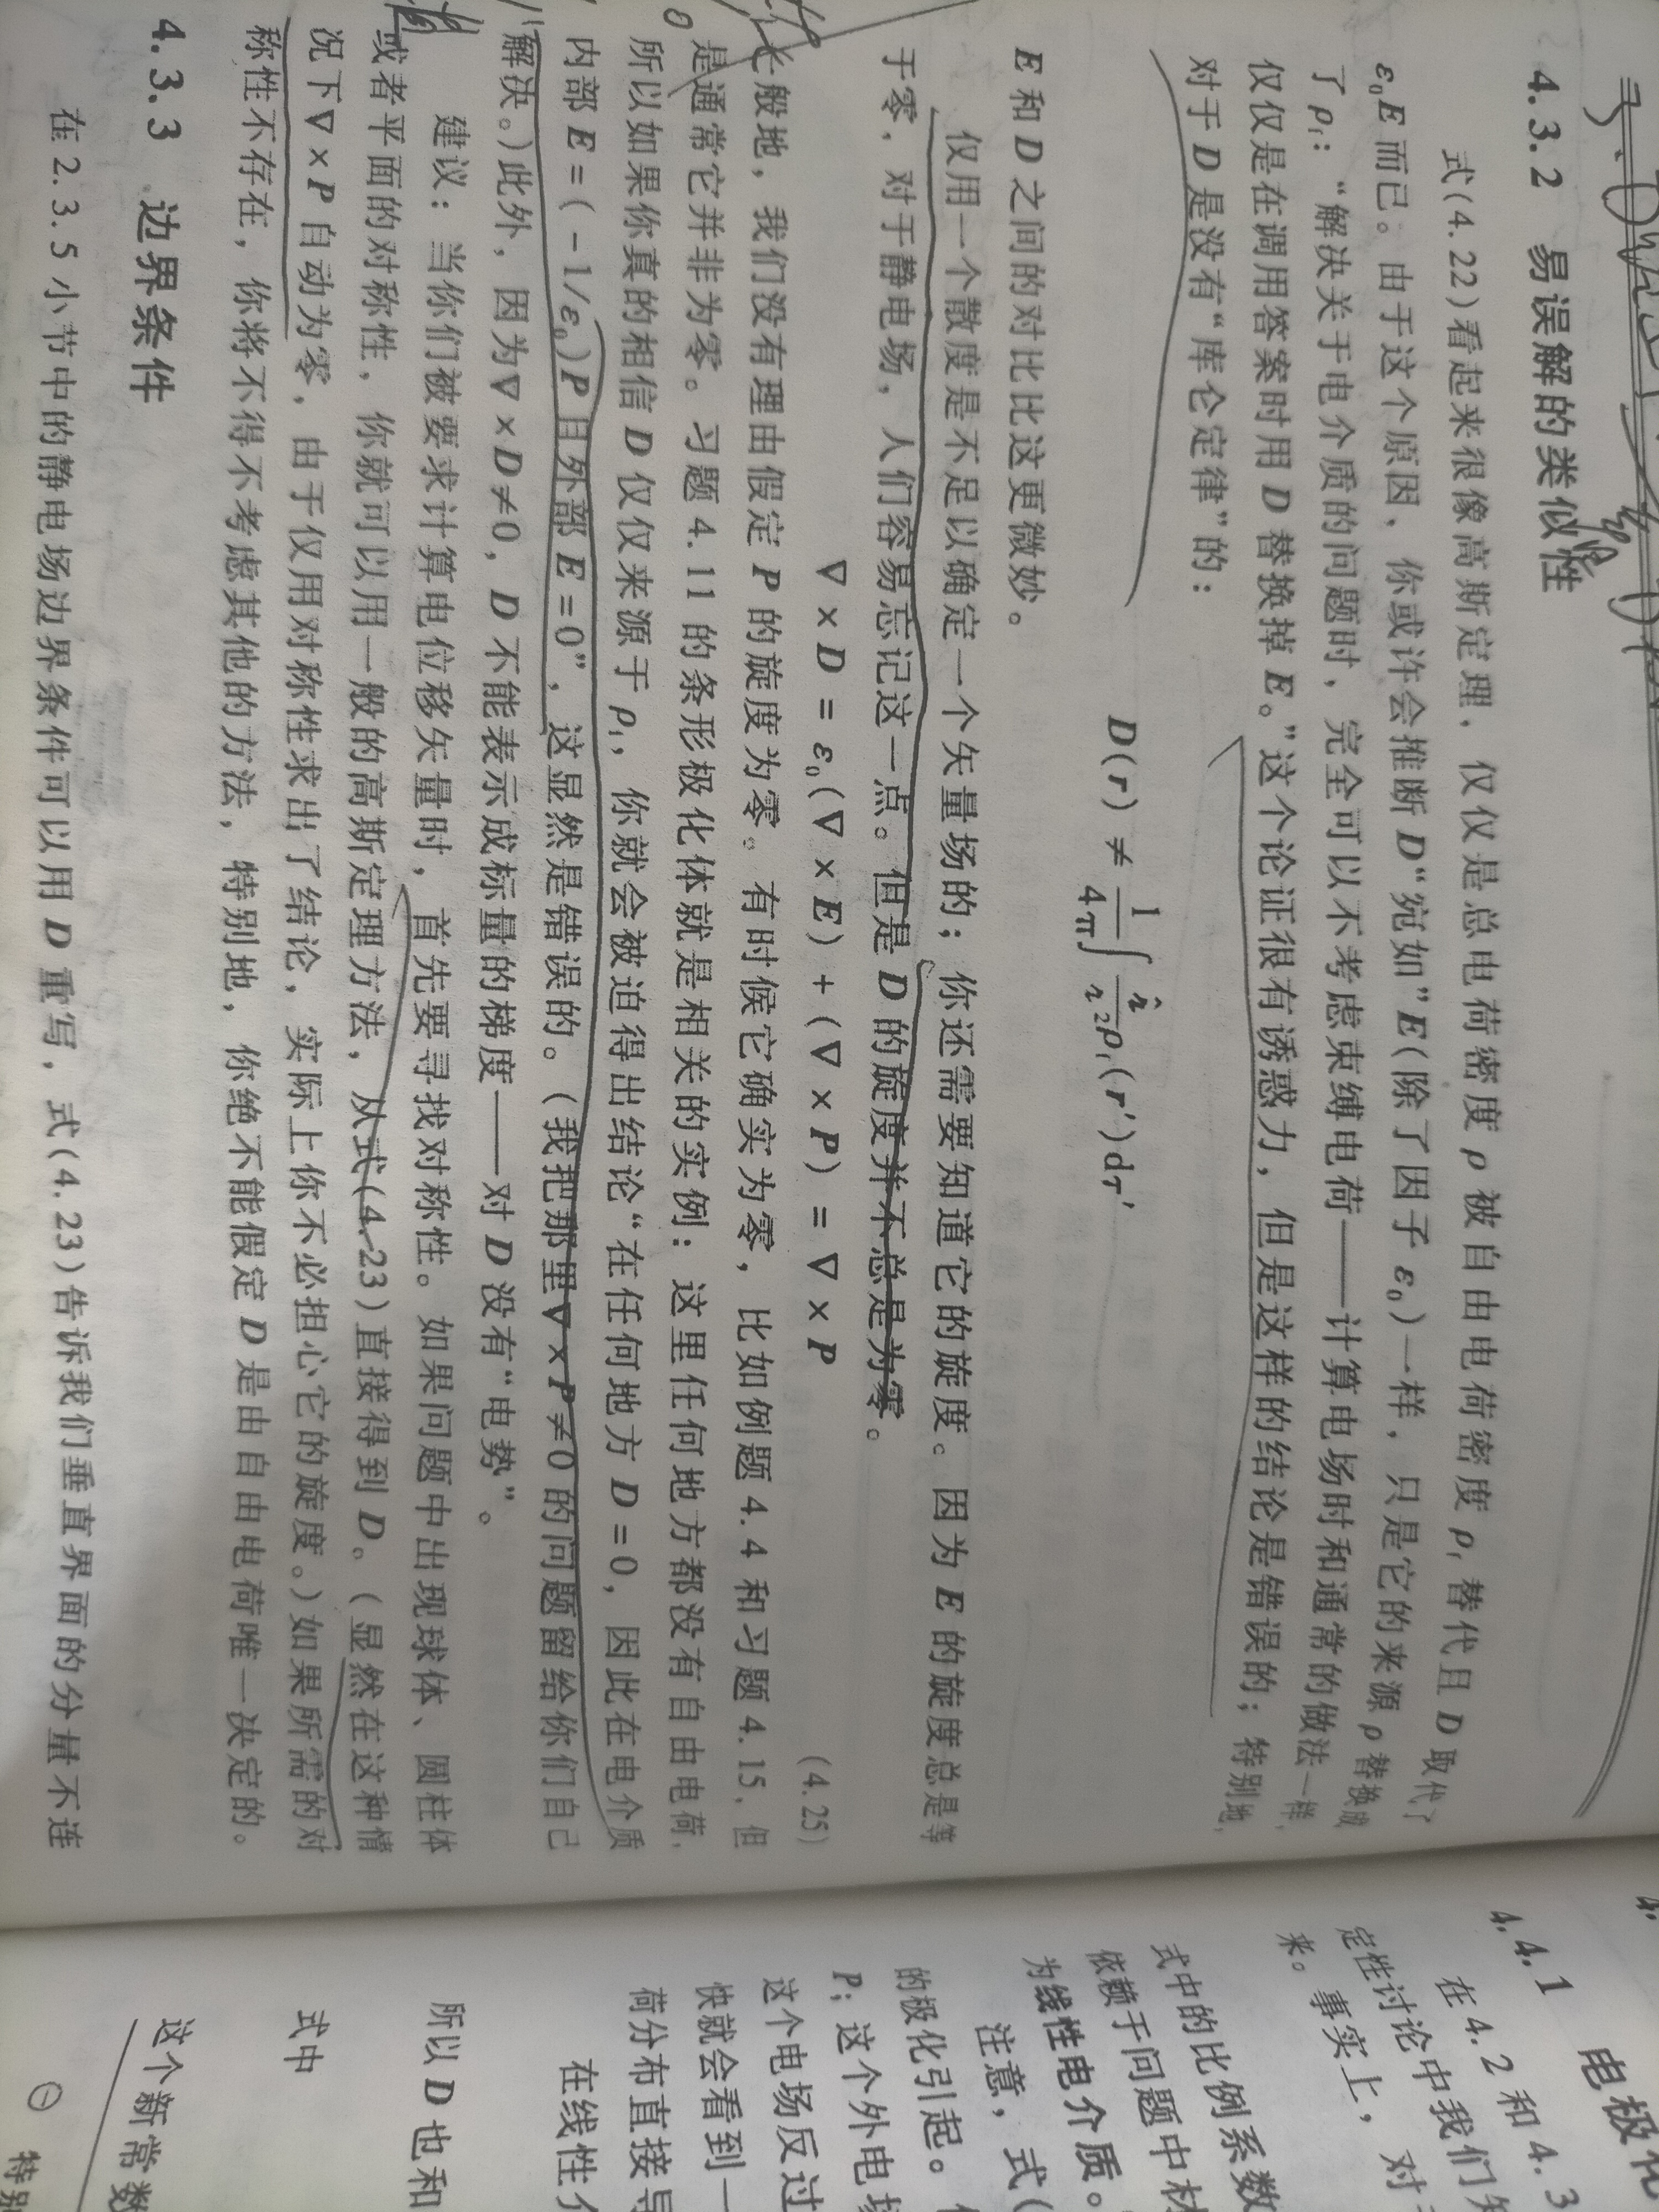 4.3.2 易误解的类似性
式(4.22)看起来很像高斯定理，仅仅是总电荷密度 ρ 被自由电荷密度 ρf 替代且 D 取代了
ε₀E 而已。由于这个原因，你或许会推断 D“宛如”E(除了因子 ε₀)一样，只是它的来源 ρ 替换成
了 ρf：“解决关于电介质的问题时，完全可以不考虑束缚电荷——计算电场时和通常的做法一样，
仅仅是在调用答案时用 D 替换掉 E。”这个论证很有诱惑力，但是这样的结论是错误的；特别地，
对于 D 是没有“库仑定律”的：
D(r) ≠ 1/4π ∫ r̂/r² ρf(r′)dτ′
E 和 D 之间的对比比这更微妙。
仅用一个散度是不足以确定一个矢量场的；你还需要知道它的旋度。因为 E 的旋度总是等
于零，对于静电场，人们容易忘记这一点。但是 D 的旋度并不总是为零。
∇ × D = ε₀(∇ × E) + (∇ × P) = ∇ × P (4.25)
一般地，我们没有理由假定 P 的旋度为零。有时候它确实为零，比如例题 4.4 和习题 4.15，但
是通常它并非为零。习题 4.11 的条形极化体就是相关的实例：这里任何地方都没有自由电荷，
所以如果你真的相信 D 仅仅来源于 ρf，你就会被迫得出结论“在任何地方 D = 0，因此在电介质
内部 E = ( - 1/ε₀)P 且外部 E = 0”，这显然是错误的。（我把那里∇ × P ≠ 0 的问题留给你们自己
解决。）此外，因为∇ × D ≠ 0，D 不能表示成标量的梯度——对 D 没有“电势”。
建议：当你们被要求计算电位移矢量时，首先要寻找对称性。如果问题中出现球体、圆柱体
或者平面的对称性，你就可以用一般的高斯定理方法，从式(4.23)直接得到 D。（显然在这种情
况下∇ × P 自动为零，由于仅用对称性求出了结论，实际上你不必担心它的旋度。）如果所需的对
称性不存在，你将不得不考虑其他的方法，特别地，你绝不能假定 D 是由自由电荷唯一决定的。
4.3.3 边界条件
在 2.3.5 小节中的静电场边界条件可以用 D 重写，式(4.23)告诉我们垂直界面的分量不连
4.4.1
在 4.2 和 4.3
定性讨论中我们
来。事实上，对
式中的比例系数
依赖于问题中材
为线性电介质。
注意，式(
的极化引起。
P；这个外电场
这个电场反过
快就会看到一
荷分布直接导
在线性介
所以 D 也和
式中
这个新常数
㊀ 特别